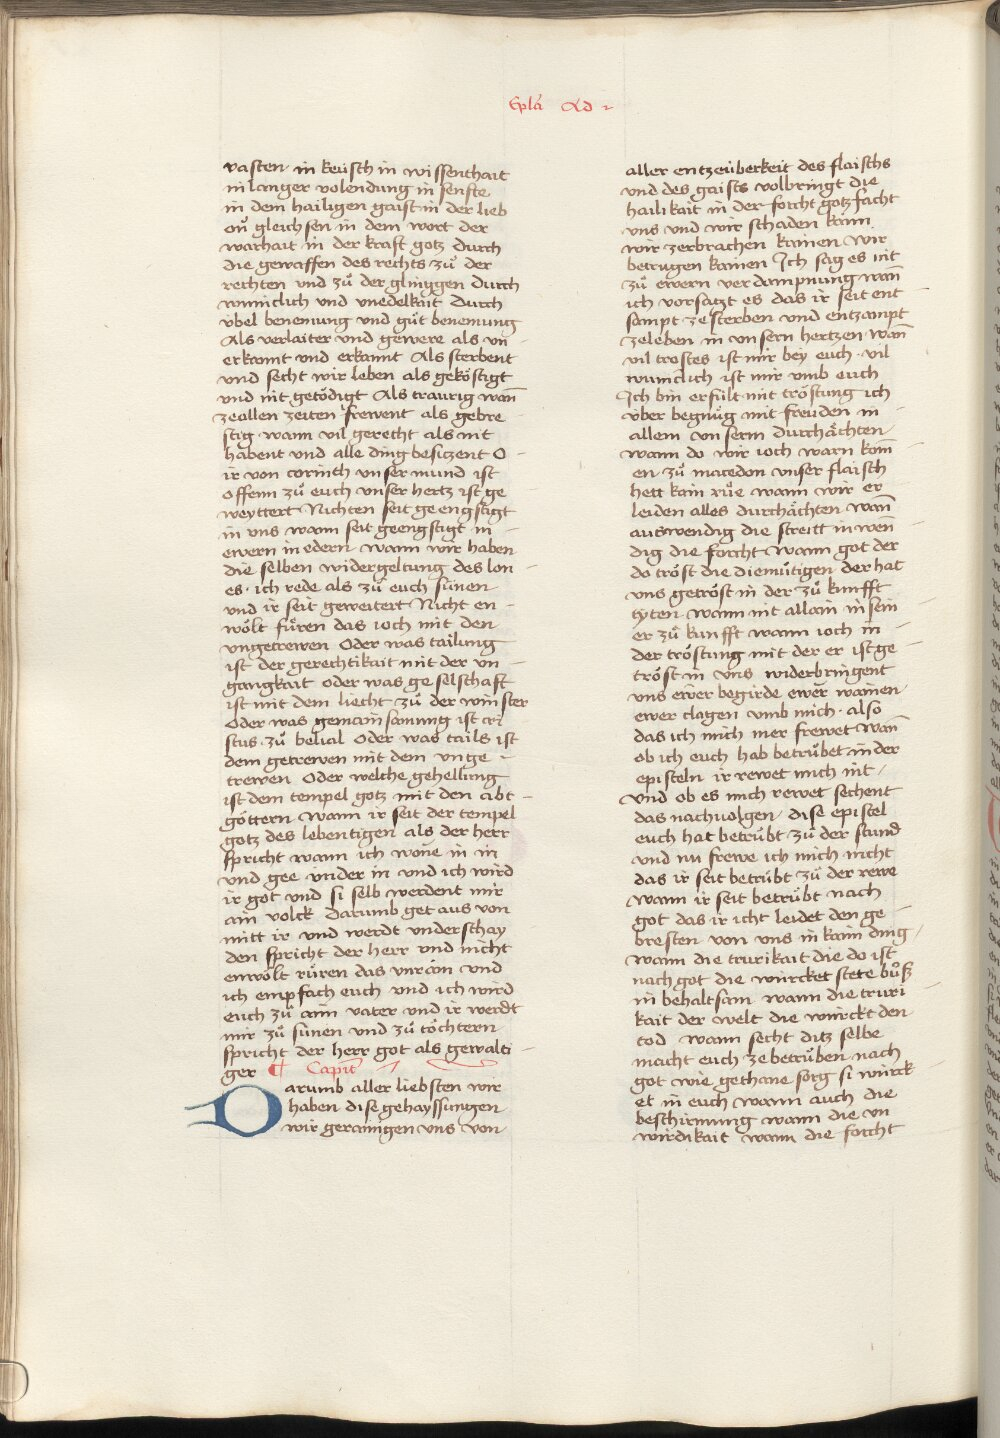 Epla Ad 2
vasten · in keüsch in wissenthait
in langer volendung in senfte
in dem hailigen gaist in der lieb
on̄ gleichsen in dem wort der
warhait in der kraft gotz durch
die gewaffen des rechts zů der
rechten und zů der glinggen durch
wunnclich und unedelkait durch
übel benemung und gůt benemung
Als verlaiter und gewere als vn̄
erkannt und erkannt Als sterbent
vnd secht wir leben als geköstigt
vnd nit getödigt Als traurig wan̄
zeallen zeiten frewent als gebre
stig wann vil gerecht als nit
habent vnd alle ding besitzent O
ir von corinth vnser mund ist
offenn zů euch vnser hertz ist ge
weyttert Nichten seit geengstigt
in vns wann seit geengstigt in
ewern inedern wann wir haben
die selben widergeltung des lon
es · ich rede als zů euch sünen
vnd ir seit geweitert Nicht en
wölt fůren das ioch mit den
vngetrewen Oder was tailung
ist der gerechtikait mit der vn
gangkait oder was geselschaft
ist mit dem liecht zů der winster
Oder was gemainsamung ist cri
stus zů belial Oder was tails ist
dem getrewen mit dem vnge
trewen Oder welche gehellung
ist dem tempel gotz mit den abt
göttern wann ir seit der tempel
gotz des lebentigen als der herr
spricht wann ich wone in in
vnd gee vnder in vnd ich wird
ir got vnd si selb werdent mir
ain volck Darumb get aus von
mitt ir vnd werdt vnderschay
den spricht der herr vnd nicht
enwölt rüren das vnrain vnd
ich empfach euch vnd ich wird
euch zů aim vater vnd ir werdt
mir zů sünen vnd zů töchtern
spricht der herr got als gewalti
ger ¶ Capitl 7
Darumb aller liebsten wir
haben dise gehayssungen
wir gerainigen vns von
aller entzeüberkeit des flaischs
vnd des gaists volbringt die
hailikait in der forcht gotz facht
vns vnd wir schaden kaim
wir zerbrachen kainen wir
betrugen kainen Ich sag es nit
zů ewern verdampnung wan̄
ich vorsagt es das ir seit ent
sampt ze sterben vnd entzampt
zeleben in vnsern hertzen wan̄
vil trostes ist mir bey euch · vil
wunnclich ist mir vmb euch
Ich bin erfült mit tröstung ich
über begnüg mit freuden in
allem vnserm durchächten
wann do wir ioch warn kom̄
en zů macedon vnser flaisch
hett kain růe wann wir er
leiden alles durchächten wan̄
auswendig die streitt inwen
dig die forcht Wann got der
do tröst die diemütigen der hat
vns getröst in der zů kunfft
tyten wann nit allain in sein
er zů kunfft wann ioch in
der tröstung mit der er ist ge
tröst in vns widerbringent
vns ewer begirde ewer wainen
ewer clagen vmb mich · also
das ich mich mer frewet wan̄
ob ich euch hab betrübet in der
episteln ir rewet mich nit
vnd ob es mich rewet sechent
das nachuolgen / dise epistel
euch hat betrübt zů der stund
vnd nu frewe ich mich nicht
das ir seit betrübt zů der rewe
wann ir seit betrübt nach
got das ir icht leidet den ge
bresten von vns in kain ding
wann die trurikait die do ist
nach got die würcket stete bůß
in behaltsam wann die truri
kait der welt die würckt den
tod wann secht ditz selbe
macht euch ze betrüben nach
got wie gethane sorg si würck
et in euch wann auch die
beschirmung wann die vn
wirdikait wann die forcht